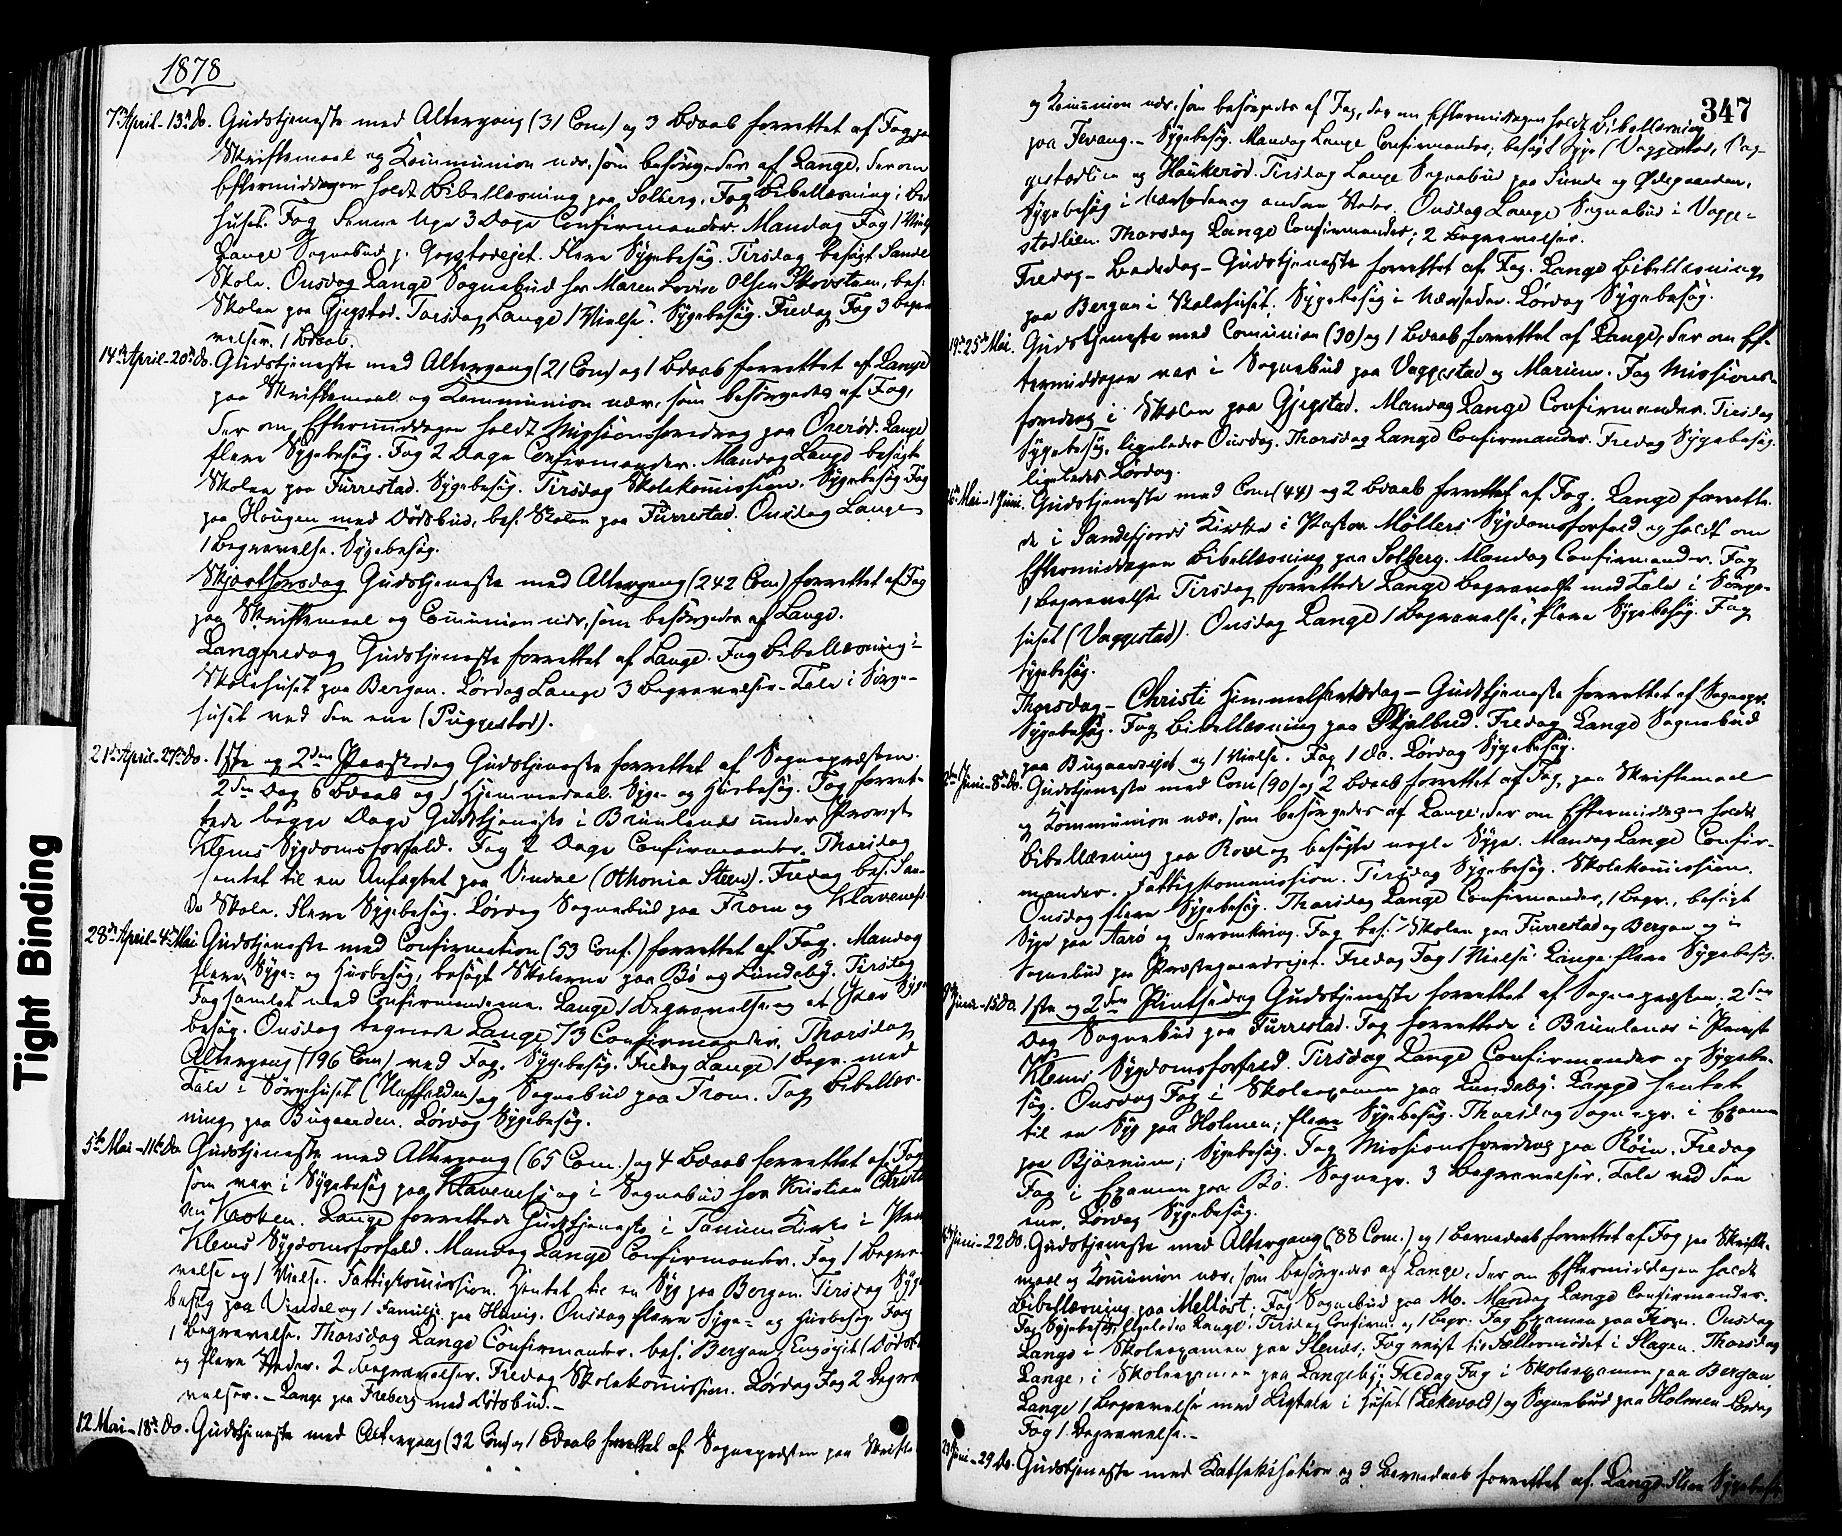 1878
7de April - 13de Do. Gudstjeneste med Altergang (31 Com) og 3 Bdaab forrettet af Fog paa
Skriftemaal og Kommunion nær, som besörgedes af Lange, der om
Eftermiddagen holdt Bibellæsning paa Solberg. Fog Bibellæsning i Bede
huset. Fog denne Uge 3 Dage Confirmander. Mandag Fog 1 Vielse
Lange Sognebud p. Gogstadejet. Flere Sygebesög. Tirsdag besögt Sande
Skole. Onsdag Lange Sognebud hos Maren Lovise Olsen Skovstuen, bes.
Skolen paa Gjegstad. Torsdag Lange 1 Vielse. Sygebesög. Fredag Fog 3 Begra
velser. 1 Bdaab.
14de April - 20de Do. Gudstjeneste med Altergang (21 Com) og 1 Bdaab forrettet af Lange
paa Skriftemaal og Kommunion nær, som besörgedes af Fog,
der om Eftermiddagen holdt Missionsforedrag paa Oneröd. Lange
flere Sygebesög. Fog 2 Dage Confirmander. Mandag Lange besögte
Skolen paa Furrestad. Sygebesög. Tirsdag Skolekommission. Sygebesög Fog
paa Haugen med Dödsbud, bes. Skolen paa Furrestad. Onsdag Lange
1 Begravelse. Sygebesög.
Skjærthorsdag Gudstjeneste med Altergang (242 Com) forrettet af Fog
paa Skriftemaal og Communion nær, som besörgedes af Lange.
Langfredag Gudstjeneste forrettet af Lange. Fog Bibellæsning i
Skolehuset paa Bergan. Lördag Lange 3 Begravelser - Tale i Sörge-
huset ved den ene (Puggestad).
21de April - 27de Do. 1ste og 2den Paaskedag Gudstjeneste forrettet af Sognepræsten.
2den Dag 6 Bdaab og 1 Hjemmedaab. Syge- og Husbesög. Fog forret-
tede begge Dage Gudstjeneste i Brunlanes under Provst
Klems Sygdomsforfald. Fog 2 Dage Confirmander. Thorsdag
hentet til en Anfægtet paa Vindal (Othonia Steen). Fredag bes. San-
de Skole. Flere Sygebesög. Lördag Sognebud paa Fram og Klavenæs.
28de April - 4de Mai Gudstjeneste med Confirmation (53 Conf.) forrettet af Fog. Mandag
flere Syge- og Husbesög, besögt Skolerne paa Bö og Lundeby. Tirsdag
Fog samlet med Confirmanderne. Lange 1 Begravelse og et Par Syge
besög. Onsdag begyndt Lange 73 Confirmander. Thorsdag
Altergang (196 Com) ved Fog. Sygebesög. Fredag Lange 1 Begr. med
Tale i Sörgehuset og Sognebud paa Fram. Fog Bibellæs-
ning paa Bugaarden. Lördag Sygebesög.
5te Mai - 11te Do Gudstjeneste med Altergang (65 Com.) og 4 Bdaab forrettet af Fog
som var i Sygebesög paa Klavenæs og i Sognebud hos Kristian Christen
sen Kroken. Lange forrettede Gudstjeneste i Tanum Kirke i Provst
Klems Sygdomsforfald. Mandag Lange Confirmander. Fog 1 Begra-
velse og 1 Vielse. Fattigkommission. Hentet til en Syg paa Bergan. Tirsdag Syge
besög paa Vindal og 1 Familie paa Havig. Onsdag flere Syge- og Husbesög. Fog
1 Begravelse. Thorsdag Lange Confirmander. bes. Bergan, Engöejet (Dödsb.
og flere Steder. 2 Begravelser. Fredag Skolekommission. Lördag Fog 2 Begra
velser. - Lange paa Freberg med Dödsbud. -
12 Mai - 18de Do. Gudstjeneste med Altergang (32 Com) og 1 Bdaab forrettet af Sognepræsten paa Skrifte
347
og Kommunion nær, som besörgedes af Fog, der om Eftermiddagen holdt Bibellæsning
paa Fevang. - Sygebesög. Mandag Lange Confirmander; besögt Syge (Vaggestad, Vag-
gestadlien og Haukeröd. Tirsdag Lange Sognebud paa Sunde og Ödegaarden,
Sygebesög i Nærheden og andre Steder. Onsdag Lange Sognebud i Vagge-
stadlien. Thorsdag Lange Confirmander; 2 Begravelser.
Fredag - Bededag - Gudstjeneste forrettet af Fog. Lange Bibellæsning
paa Bergan i Skolehuset. Sygebesög i Nærheden. Lördag Sygebesög.
19de-25de Mai. Gudstjeneste med Comunion (30) og 1 Bdaab forrettet af Lange, der om Ef-
termiddagen var i Sognebud paa Vaggestad og Marium. Fog Missions-
foredrag i Skolen paa Gjegstad. Mandag Lange Confirmander. Tirsdag
Sygebesög, ligeledes Onsdag. Thorsdag Lange Confirmander. Fredag Sygebesög.
ligeledes Lördag.
26de Mai - 1 Juni. Gudstjeneste med Com (44) og 2 Bdaab forrettet af Fog. Lange forrette-
de i Sandefjords Kirke i Pastor Möllers Sygdomsforfald og holdt om
Eftermiddagen Bibellæsning paa Solberg. Mandag Confirmander. Fog
1 Begravelse. Tirsdag forrettede Lange Begravelse med Tale i Sörge-
huset (Vaggestad). Onsdag Lange 1 Begravelse, flere Sygebesög. Fog
Sygebesög.
Thorsdag - Christi Himmelfartsdag - Gudstjeneste forrettet af Sognepr.
Sygebesög. Fog Bibellæsning paa Skjelbred. Fredag Lange Sognebud
paa Bugaardsejet og 1 Vielse. Fog 1 do. Lördag Sygebesög.
2den Juni - 8de Do. Gudstjeneste med Com (90) og 2 Bdaab forrettet af Fog, paa Skriftemaal
og Kommunion nær, som besörgedes af Lange, der om Eftermiddagen holdt
Bibellæsning paa Rove og besögte nogle Syge. Mandag Lange Confir-
mander. Fattigkommission. Tirsdag Sygebesög. Skolekommission.
Onsdag flere Sygebesög. Thorsdag Lange Confirmander, 1 Begr., besögt
Syge paa Aarö og deromkring. Fog bes. Skolen paa Furrestad og Bergan og i
Sognebud paa Præstegaardsejet. Fredag Fog 1 Vielse. Lange flere Sygebesög.
9de Juni - 15 Do. 1ste og 2den Pintsedag Gudstjeneste forrettet af Sognepræsten; 2den
Dag Sognebud paa Furrestad. Fog forrettede i Brunlanes i Provst
Klems Sygdomsforfald. Tirsdag Lange Confirmander og Sygebe-
sög. Onsdag Fog i Skoleexamen paa Lundeby. Lange hentet
til en Syg paa Holmen; flere Sygebesög. Thorsdag Sognepr. i Examen
paa Bjørnum; Sygebesög. Fog Missionsforedrag paa Röin. Fredag
Fog i Examen paa Bö. Sognepr. 3 Begravelser. Tale ved den
ene. Lördag Sygebesög.
16de Juni - 22 Do. Gudstjeneste med Altergang (88 Com.) og 1 Barnedaab forrettet af Fog paa Skrifte-
maal og Kommunion nær, som besörgedes af Lange, der om Eftermiddagen holdt
Bibellæsning paa Melløst; Fog Sognebud paa Mo. Mandag Lange Confirmander.
Fog Sygebesög, ligeledes Lange. Tirsdag Confirm. og 1 Begr. Fog Examen paa Fram. Onsdag
Lange i Skoleexamen paa Stenes; Fog reist til Stiftsmödet i Slagen. Thorsdag
Lange, i Skoleexamen paa Langeby; Fredag Fog i Skoleexamen paa Bergan.
Lange 1 Begravelse med Ligtale i Huset (Lekevold) og Sognebud paa Holmen Lördag
Fog 1 Begravelse. -
23 Juni - 29 Do. Gudstjeneste med Katekisation og 3 Barnedaab forrettet af Lange. Flere Sygebesög
Tight Binding